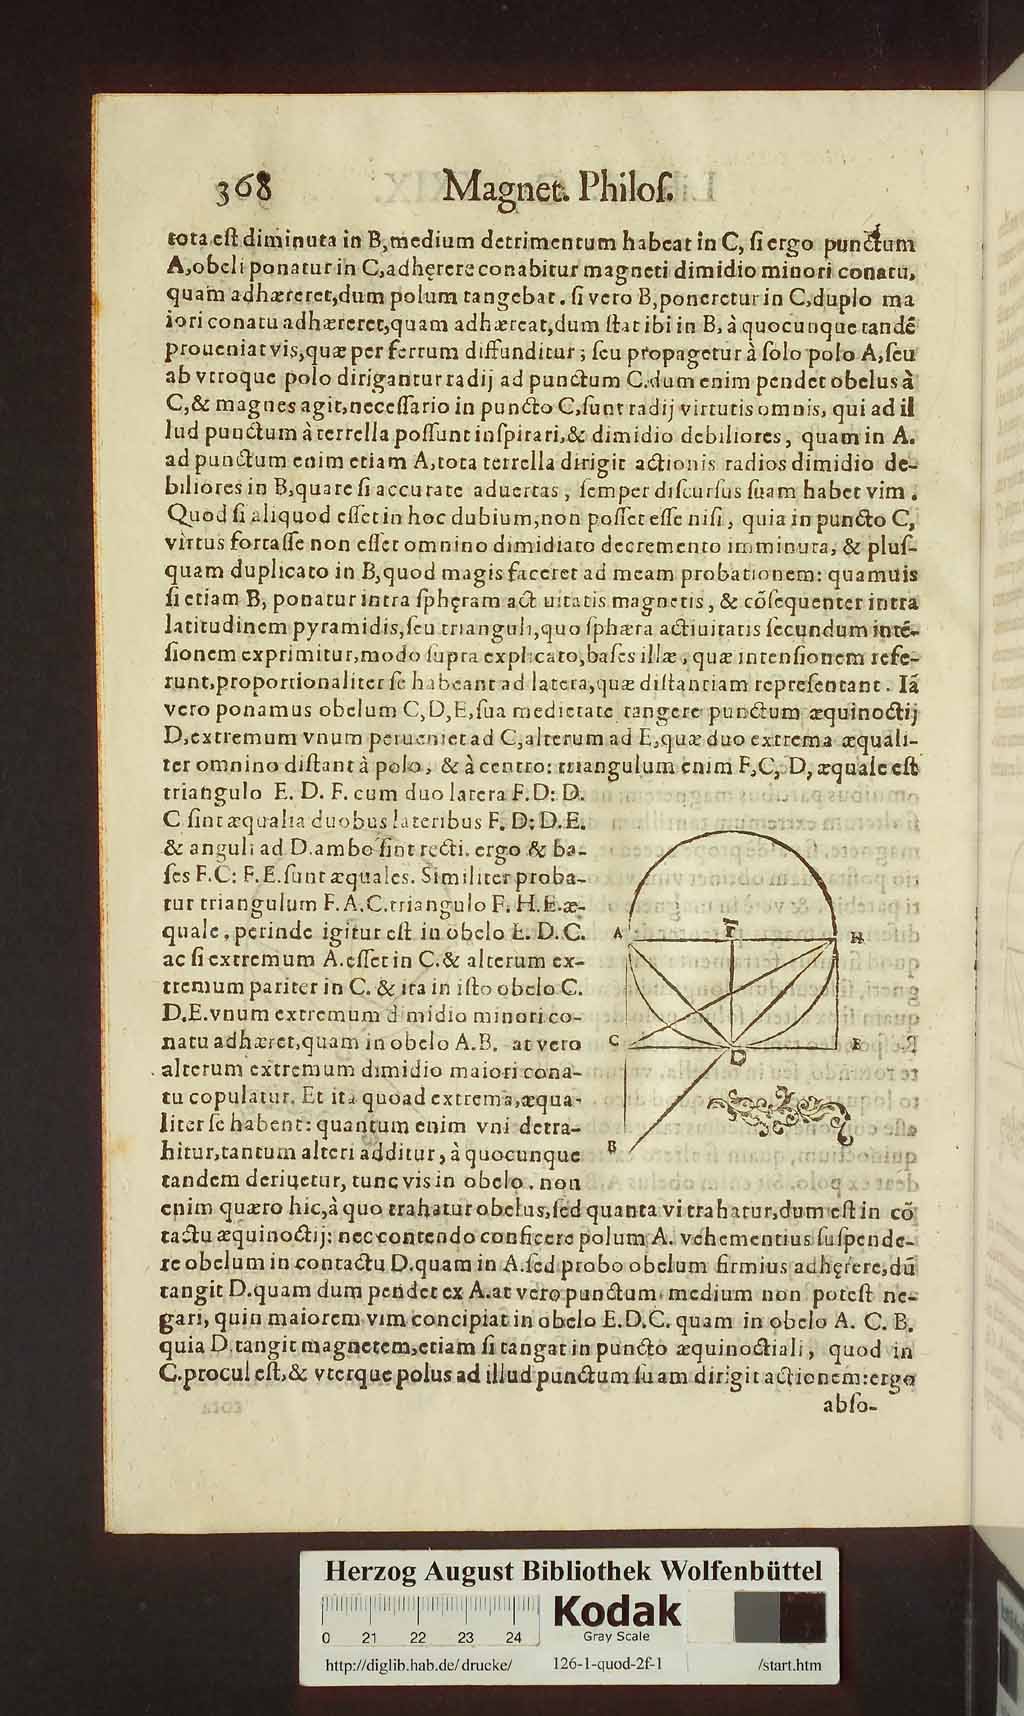 368 Magnet. Philoſ.
tota eſt diminuta in B, medium detrimentum habeat in C, ſi ergo punctum
A, obeli ponatur in C, adhęrere conabitur magneti dimidio minori conatu,
quam adhæreret, dum polum tangebat. ſi vero B, poneretur in C, duplo ma
iori conatu adhæreret, quam adhæreat, dum ſtat ibi in B, à quocunque tandẽ
proueniat vis, quæ per ferrum diffunditur; ſeu propagetur à ſolo polo A, ſeu
ab vtroque polo dirigantur radij ad punctum C. dum enim pendet obelus à
C, & magnes agit, neceſſario in puncto C, ſunt radij virtutis omnis, qui ad il
lud punctum à terrella poſſunt inſpirari, & dimidio debiliores, quam in A.
ad punctum enim etiam A, tota terrella dirigit actionis radios dimidio de-
biliores in B, quare ſi accurate aduertas, ſemper diſcurſus ſuam habet vim.
Quod ſi aliquod eſſet in hoc dubium, non poſſet eſſe niſi, quia in puncto C,
virtus fortaſſe non eſſet omnino dimidiato decremento imminuta, & pluſ-
quam duplicato in B, quod magis faceret ad meam probationem: quamuis
ſi etiam B, ponatur intra ſphęram act uitatis magnetis, & cõſequenter intra
latitudinem pyramidis, ſeu trianguli, quo ſphæra actiuitatis ſecundum intẽ-
ſionem exprimitur, modo ſupra explicato, baſes illæ, quæ intenſionem refe-
runt, proportionaliter ſe habeant ad latera, quæ diſtantiam repreſentant. Iã
vero ponamus obelum C, D, E, ſua medietate tangere punctum æquinoctij
D, extremum vnum perueniet ad C, alterum ad E, quæ duo extrema æquali-
ter omnino diſtant à polo, & à centro: triangulum enim F, C, D, æquale eſt
triangulo E. D. F. cum duo latera F. D: D.
C ſint æqualia duobus lateribus F. D: D. E.
& anguli ad D. ambo ſint recti. ergo & ba-
ſes F. C: F. E. ſunt æquales. Similiter proba-
tur triangulum F. A. C. triangulo F. H. E. æ-
quale, perinde igitur eſt in obelo E. D. C.
ac ſi extremum A. eſſet in C. & alterum ex-
tremum pariter in C. & ita in iſto obelo C.
D. E. vnum extremum dimidio minori co-
natu adhæret, quam in obelo A. B. at vero
alterum extremum dimidio maiori cona-
tu copulatur. Et ita quoad extrema, æqua-
liter ſe habent: quantum enim vni detra-
hitur, tantum alteri additur, à quocunque
tandem deriuetur, tunc vis in obelo. non
enim quæro hic, à quo trahatur obelus, ſed quanta vi trahatur, dum eſt in cõ
tactu æquinoctij: nec contendo conficere polum A. vehementius ſuſpende-
re obelum in contactu D. quam in A. ſed probo obelum firmius adhęrere, dũ
tangit D. quam dum pendet ex A. at vero punctum medium non poteſt ne-
gari, quin maiorem vim concipiat in obelo E. D. C. quam in obelo A. C. B.
quia D. tangit magnetem, etiam ſi tangat in puncto æquinoctiali, quod in
C. procul eſt, & vterque polus ad illud punctum ſuam dirigit actionem: ergo
abſo-
A F H
C D E
B
Herzog August Bibliothek Wolfenbüttel
0 21 22 23 24
Kodak
Gray Scale
http://diglib.hab.de/drucke/ 126-1-quod-2f-1 /start.htm